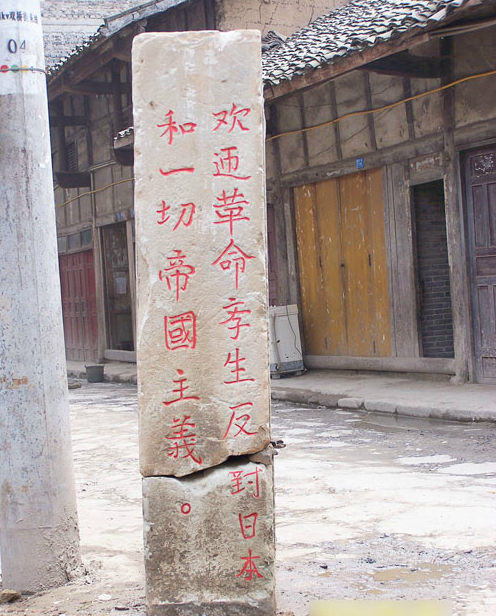 欢迊革命孛生反對日本
和一切帝國主義。
04